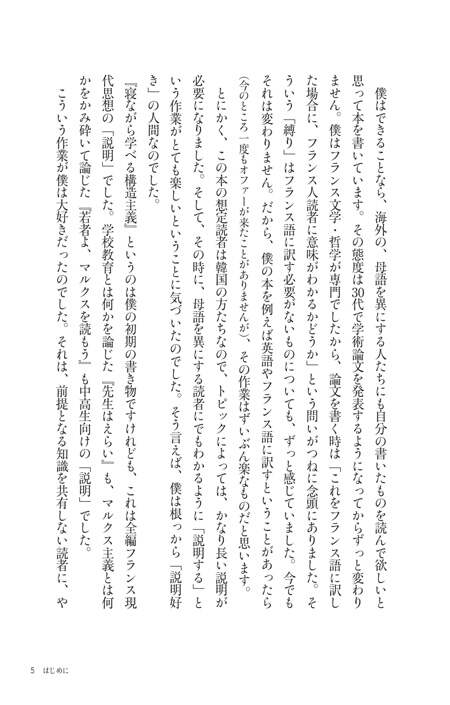 僕はできることなら、海外の、母語を異にする人たちにも自分の書いたものを読んで欲しいと
思って本を書いています。その態度は30代で学術論文を発表するようになってからずっと変わり
ません。僕はフランス文学・哲学が専門でしたから、論文を書く時は「これをフランス語に訳し
た場合に、フランス人読者に意味がわかるかどうか」という問いがつねに念頭にありました。そ
ういう「縛り」はフランス語に訳す必要がないものについても、ずっと感じていました。今でも
それは変わりません。だから、僕の本を例えば英語やフランス語に訳すということがあったら
(今のところ一度もオファーが来たことがありませんが)、その作業はずいぶん楽なものだと思います。
とにかく、この本の想定読者は韓国の方たちなので、トピックによっては、かなり長い説明が
必要になりました。そして、その時に、母語を異にする読者にでもわかるように「説明する」と
いう作業がとても楽しいということに気づいたのでした。そう言えば、僕は根っから「説明好
き」の人間なのでした。
『寝ながら学べる構造主義』というのは僕の初期の書き物ですけれども、これは全編フランス現
代思想の「説明」でした。学校教育とは何かを論じた『先生はえらい』も、マルクス主義とは何
かをかみ砕いて論じた『若者よ、マルクスを読もう』も中高生向けの「説明」でした。
こういう作業が僕は大好きだったのでした。それは、前提となる知識を共有しない読者に、や
5 はじめに